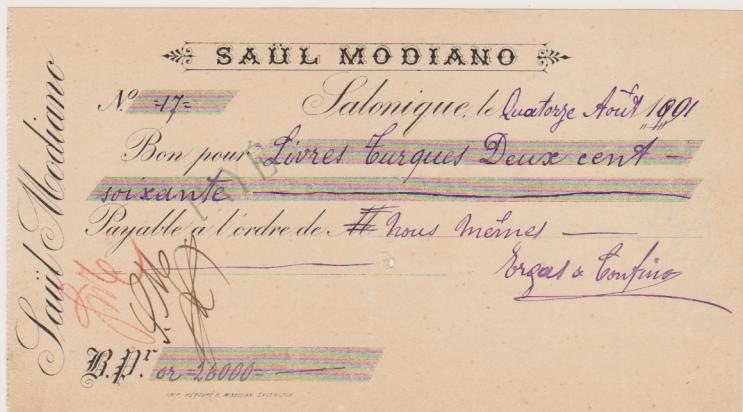 SAÜL MODIANO
Saül Modiano
Nº =17=
Salonique, le Quatorze Août 1901
Bon pour Livres Turques Deux cent -
soixante
PAYÉ
Payable à l'ordre de nous mêmes
Ergas & Confino
B.Pr. or =26000=